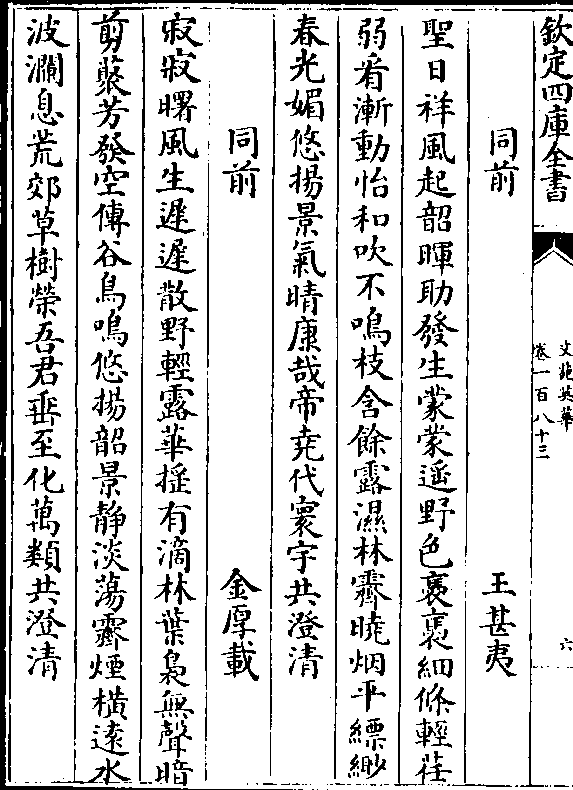 欽定四庫全書
文苑英華
卷一百八十三
六
同前
王甚夷
聖日祥風起韶暉助發生蒙蒙遥野色裊裊細條輕荏
弱看漸動怡和吹不鳴枝含餘露濕林霽曉烟平縹緲
春光媚悠揚景氣晴康哉帝堯代寰宇共澄清
同前
金厚載
寂寂曙風生遲遲散野輕露華揺有滴林葉裊無聲暗
剪藂芳發空傳谷鳥鳴悠揚韶景静淡蕩霽煙横逺水
波瀾息荒郊草樹榮吾君垂至化萬類共澄清